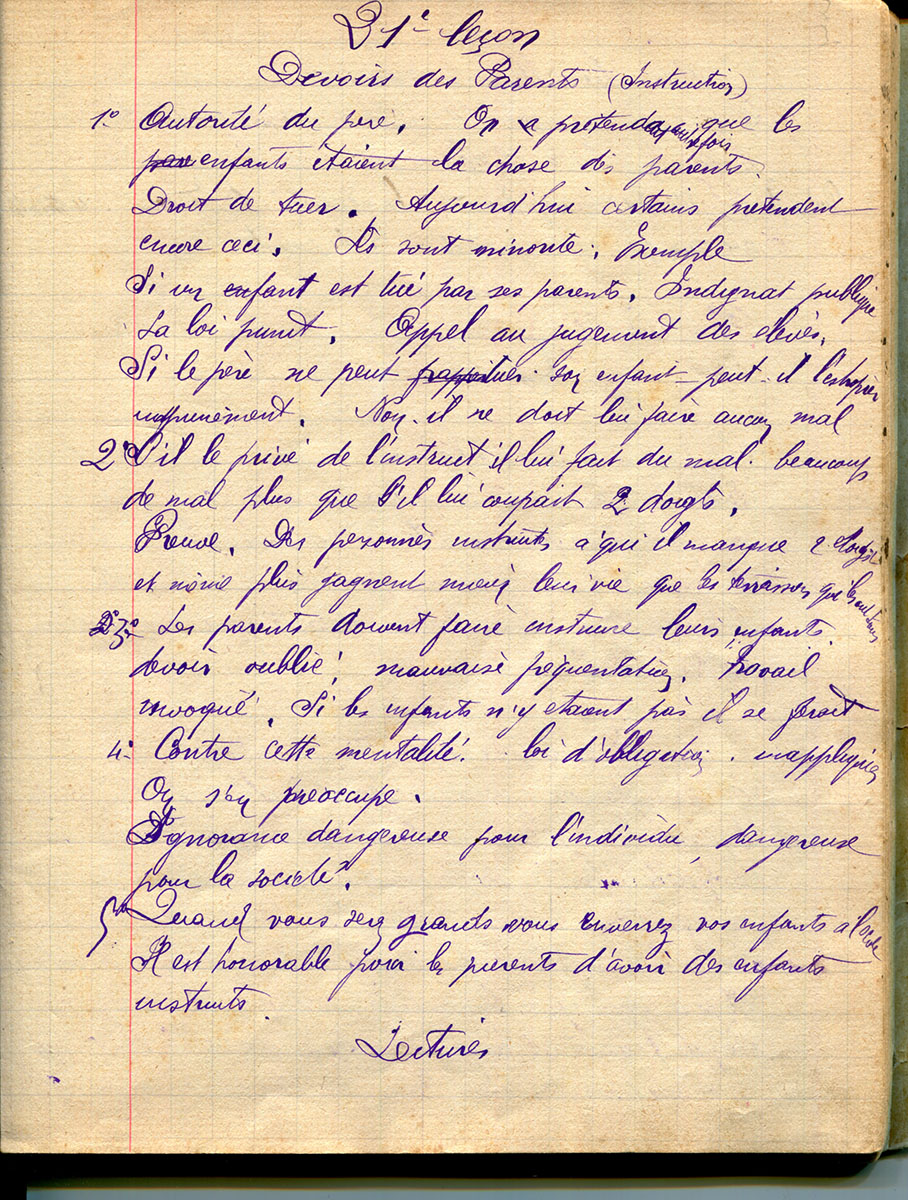 31e leçon
Devoirs des Parents (Instruction)
1o Autorité du père. On a prétendu autrefois que les
enfants étaient la chose des parents.
Droit de tuer. Aujourd'hui certains prétendent
encore ceci. Ils sont minorité. Exemple
Si un enfant est tué par ses parents. Indignat publique
La loi punit. Appel au jugement des élèves.
Si le père ne peut tuer son enfant peut-il l'estropier
impunément. Non il ne doit lui faire aucun mal
2o S'il le prive de l'instruct il lui fait du mal. beaucoup
de mal plus que s'il lui coupait 2 doigts.
Preuve. Des personnes instruites à qui il manque 2 doigts
et même plus gagnent mieux leur vie que les terrassiers qui les ont tous
3o Les parents doivent faire instruire leurs enfants.
devoir oublié, mauvaise fréquentation. Travail
invoqué. Si les enfants n'y étaient pas il se ferait
4o Contre cette mentalité. loi d'obligation. inappliquée
On s'en préoccupe.
Ignorance dangereuse pour l'individu, dangereuse
pour la société.
5o Quand vous serez grands vous enverrez vos enfants à l'école
Il est honorable pour les parents d'avoir des enfants
instruits.
Lectures